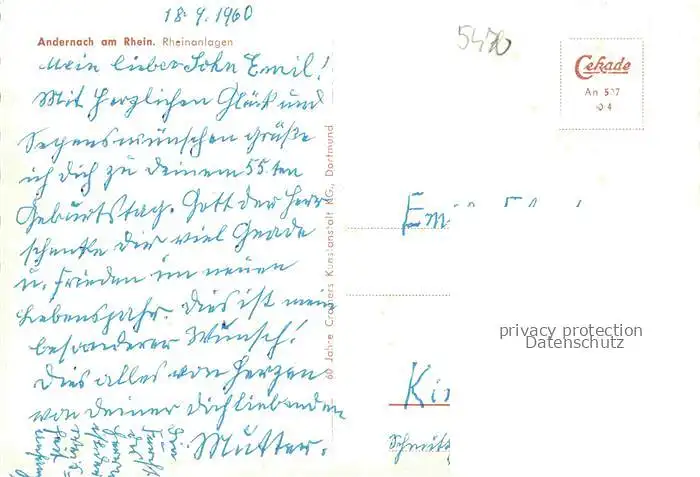 18.9.1960
Andernach am Rhein. Rheinanlagen
Mein lieber Sohn Emil!
Mit herzlichen Glück und
Segenswünschen grüße
ich dich zu deinem 55 ten
Geburtstag. Gott der Herr
schenke dir viel Gnade
u. Frieden im neuen
Lebensjahr. Dies ist mein
besonderer Wunsch!
Dies alles von Herzen
von deiner dich liebenden
Mutter.
60 Jahre Cramers Kunstanstalt KG., Dortmund
5470
Cekade
An 527
privacy protection
Datenschutz